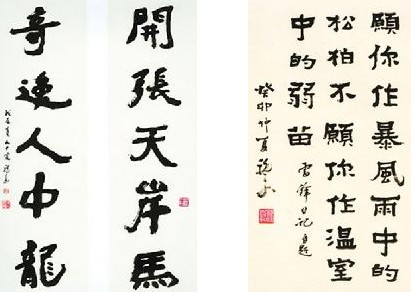 開張天岸馬
奇逸人中龍
願你作暴風雨中的
松柏不願你作溫室
中的弱苗
雷鋒日記
癸卯仲夏